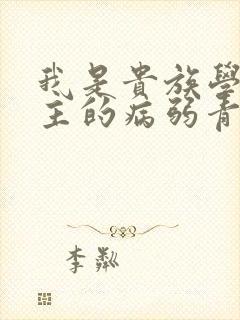 我是貴族學
主的病弱青
李粼